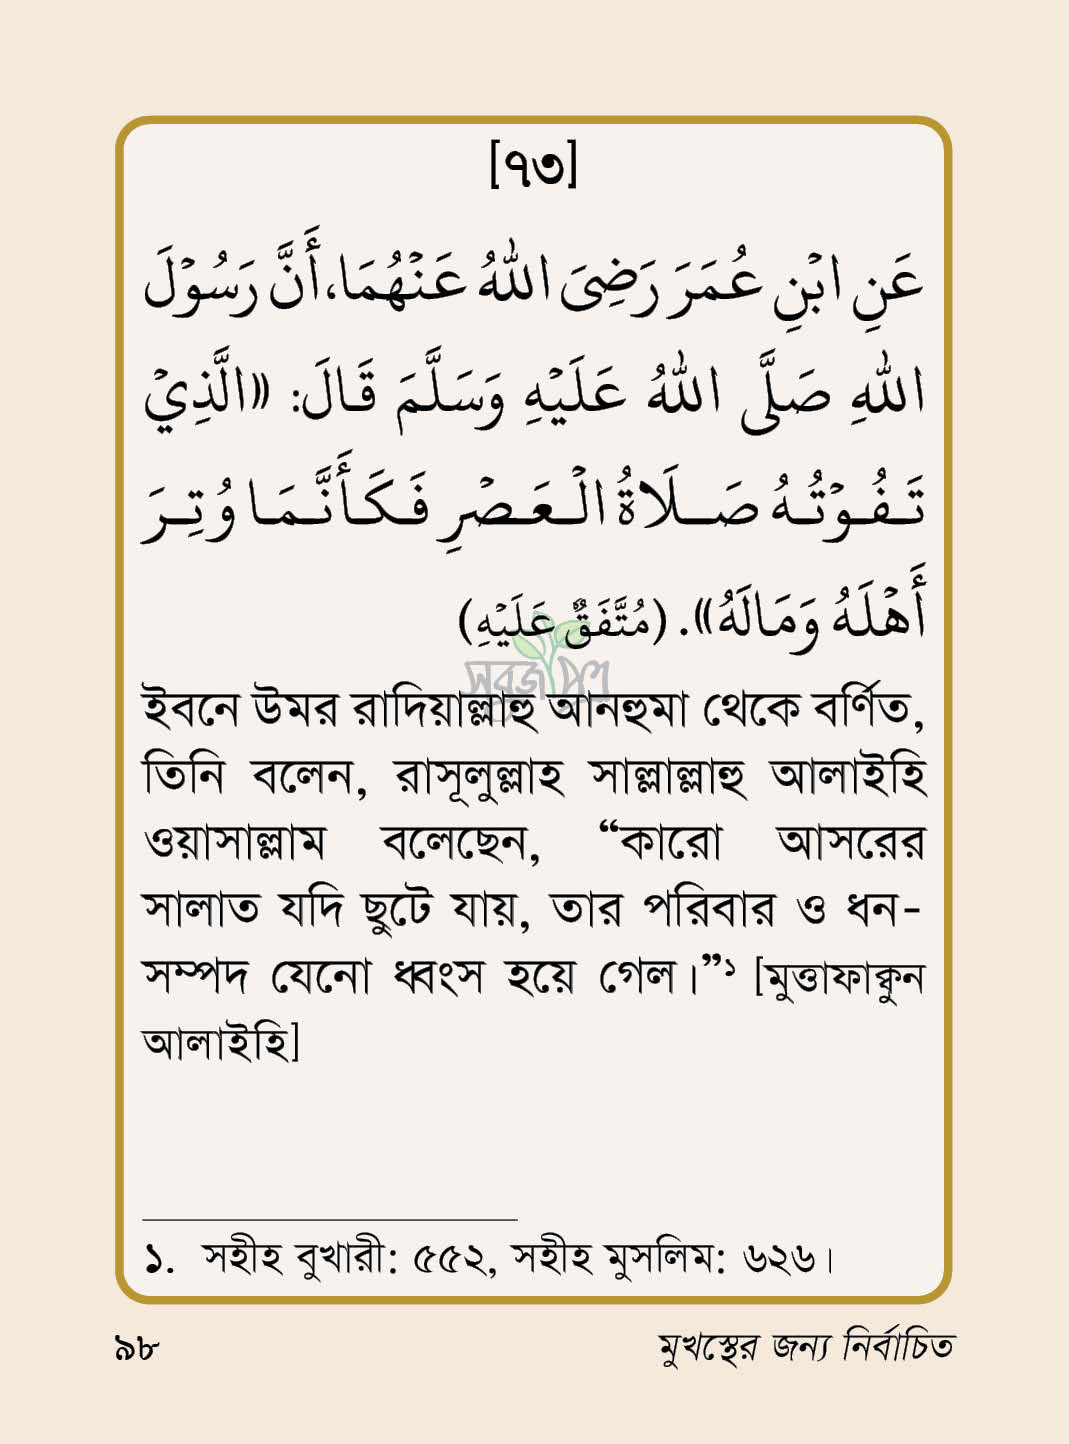 [৭৩]
عَنِ ابْنِ عُمَرَ رَضِيَ اللهُ عَنْهُمَا، أَنَّ رَسُوْلَ
اللهِ صَلَّى اللهُ عَلَيْهِ وَسَلَّمَ قَالَ: «الَّذِيْ
تَفُوْتُهُ صَلَاةُ الْعَصْرِ فَكَأَنَّمَا وُتِرَ
أَهْلَهُ وَمَالَهُ». (مُتَّفَقٌ عَلَيْهِ)
সবুজপত্র
ইবনে উমর রাদিয়াল্লাহু আনহুমা থেকে বর্ণিত,
তিনি বলেন, রাসূলুল্লাহ সাল্লাল্লাহু আলাইহি
ওয়াসাল্লাম বলেছেন, “কারো আসরের
সালাত যদি ছুটে যায়, তার পরিবার ও ধন-
সম্পদ যেনো ধ্বংস হয়ে গেল।”১ [মুত্তাফাক্বুন
আলাইহি]
১. সহীহ বুখারী: ৫৫২, সহীহ মুসলিম: ৬২৬।
৯৮ মুখস্থের জন্য নির্বাচিত